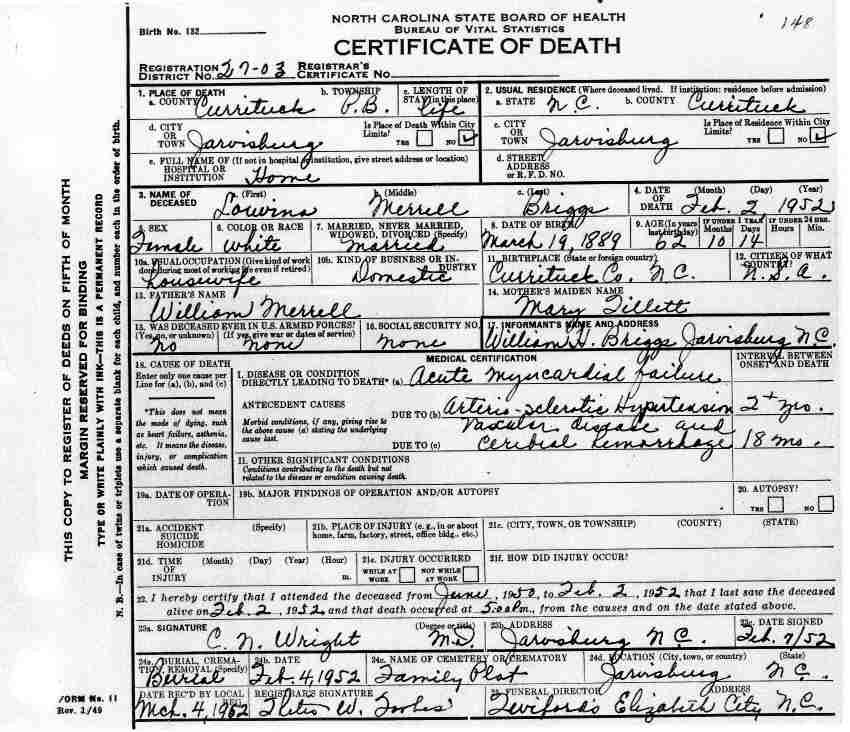 148
NORTH CAROLINA STATE BOARD OF HEALTH
BUREAU OF VITAL STATISTICS
Birth No. 132
CERTIFICATE OF DEATH
REGISTRATION DISTRICT NO. 27-03 REGISTRAR'S CERTIFICATE NO.
1. PLACE OF DEATH
a. COUNTY Currituck b. TOWNSHIP P.B. c. LENGTH OF STAY (in this place) life
2. USUAL RESIDENCE (Where deceased lived. If institution: residence before admission)
a. STATE N.C. b. COUNTY Currituck
d. CITY OR TOWN Jarvisburg Is Place of Death Within City Limits? YES NO
c. CITY OR TOWN Jarvisburg Is Place of Residence Within City Limits? YES NO
e. FULL NAME OF (If not in hospital or institution, give street address or location) HOSPITAL OR INSTITUTION Home
d. STREET ADDRESS or R.F.D. NO.
3. NAME OF DECEASED a. (First) Louvina b. (Middle) Merrell c. (Last) Briggs
4. DATE OF DEATH (Month) (Day) (Year) Feb 2 1952
5. SEX Female
6. COLOR OR RACE White
7. MARRIED, NEVER MARRIED, WIDOWED, DIVORCED (Specify) Married
8. DATE OF BIRTH March 19, 1889
9. AGE (In years last birthday) 62 IF UNDER 1 YEAR Months 10 Days 14 IF UNDER 24 HRS. Hours Min.
10a. USUAL OCCUPATION (Give kind of work done during most of working life even if retired) Housewife
10b. KIND OF BUSINESS OR INDUSTRY Domestic
11. BIRTHPLACE (State or foreign country) Currituck Co. N.C.
12. CITIZEN OF WHAT COUNTRY? U.S.A.
13. FATHER'S NAME William Merrell
14. MOTHER'S MAIDEN NAME Mary Tillett
15. WAS DECEASED EVER IN U.S. ARMED FORCES? (Yes, no, or unknown) (If yes, give war or dates of service) no none
16. SOCIAL SECURITY NO. none
17. INFORMANT'S NAME AND ADDRESS William H. Briggs Jarvisburg N.C.
18. CAUSE OF DEATH
Enter only one cause per Line for (a), (b), and (c)
*This does not mean the mode of dying, such as heart failure, asthenia, etc. It means the disease, injury, or complication which caused death.
MEDICAL CERTIFICATION
INTERVAL BETWEEN ONSET AND DEATH
I. DISEASE OR CONDITION DIRECTLY LEADING TO DEATH* (a) Acute myocardial failure
ANTECEDENT CAUSES
Morbid conditions, if any, giving rise to the above cause (a) stating the underlying cause last.
DUE TO (b) Arterio-sclerotic Hypertension 2+ mo.
Vascular disease and
DUE TO (c) Cerebral hemorrhage 18 mo.
II. OTHER SIGNIFICANT CONDITIONS
Conditions contributing to the death but not related to the disease or condition causing death.
19a. DATE OF OPERATION
19b. MAJOR FINDINGS OF OPERATION AND/OR AUTOPSY
20. AUTOPSY? YES NO
21a. ACCIDENT SUICIDE HOMICIDE (Specify)
21b. PLACE OF INJURY (e.g., in or about home, farm, factory, street, office bldg., etc.)
21c. (CITY, TOWN, OR TOWNSHIP) (COUNTY) (STATE)
21d. TIME OF INJURY (Month) (Day) (Year) (Hour) m.
21e. INJURY OCCURRED WHILE AT WORK NOT WHILE AT WORK
21f. HOW DID INJURY OCCUR?
22. I hereby certify that I attended the deceased from June, 1950, to Feb. 2, 1952 that I last saw the deceased
alive on Feb. 2, 1952 and that death occurred at 5:00 P.m., from the causes and on the date stated above.
23a. SIGNATURE (Degree or title) C. N. Wright M.D.
23b. ADDRESS Jarvisburg N.C.
23c. DATE SIGNED Feb. 7/52
24a. BURIAL, CREMATION, REMOVAL (Specify) Burial
24b. DATE Feb. 4, 1952
24c. NAME OF CEMETERY OR CREMATORY Family Plot
24d. LOCATION (City, town, or county) (State) Jarvisburg N.C.
DATE REC'D BY LOCAL REG. Mch. 4, 1952
REGISTRAR'S SIGNATURE W. Forbes
25. FUNERAL DIRECTOR ADDRESS Twiford's Elizabeth City N.C.
FORM No. 11
Rev. 1/49
THIS COPY TO REGISTER OF DEEDS ON FIFTH OF MONTH
MARGIN RESERVED FOR BINDING
TYPE OR WRITE PLAINLY WITH INK—THIS IS A PERMANENT RECORD
N. B.—In case of twins or triplets use a separate blank for each child, and number each in the order of birth.